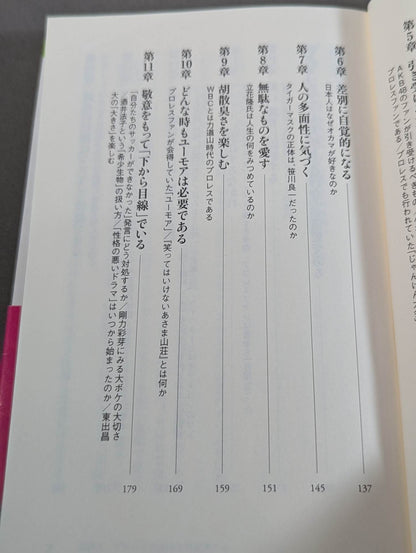 第5章
AKB48の
プロレスファンである
プロレスでも行われていた「じゃんけん
第6章 差別に自覚的になる 137
日本人はなぜオカマが好きなのか
第7章 人の多面性に気づく 145
タイガーマスクの正体は、“笹川良一”だったのか
第8章 無駄なものを愛す 151
立花隆氏は人生の何をみつめているのか
第9章 胡散臭さを楽しむ 159
WBCとは力道山時代のプロレスである
第10章 どんな時もユーモアは必要である 169
プロレスファンが会得していた「ユーモア」/「笑ってはいけないあさま山荘」とは何か
第11章 敬意をもって「下から目線」でいる 179
「自分たちのサッカーができなかった」発言にどう対処するか/剛力彩芽にみる大ボケの大切さ
/「酒井法子という“希少生物”の扱い方/「性格の悪いドラマ」はいつから始まったのか/東出昌
大の「大きさ」を楽しむ